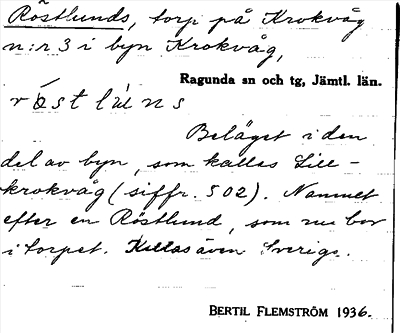 Röstlunds, torp på Krokvåg
n:r 3 i byn Krokvåg,
Ragunda sn och tg, Jämtl. län.
röstlúns
Beläget i den
del av byn, som kallas Lill-
krokvåg (siffr. 502). Namnet
efter en Röstlund, som nu bor
i torpet. Kallas även Sverige.
BERTIL FLEMSTRÖM 1936.